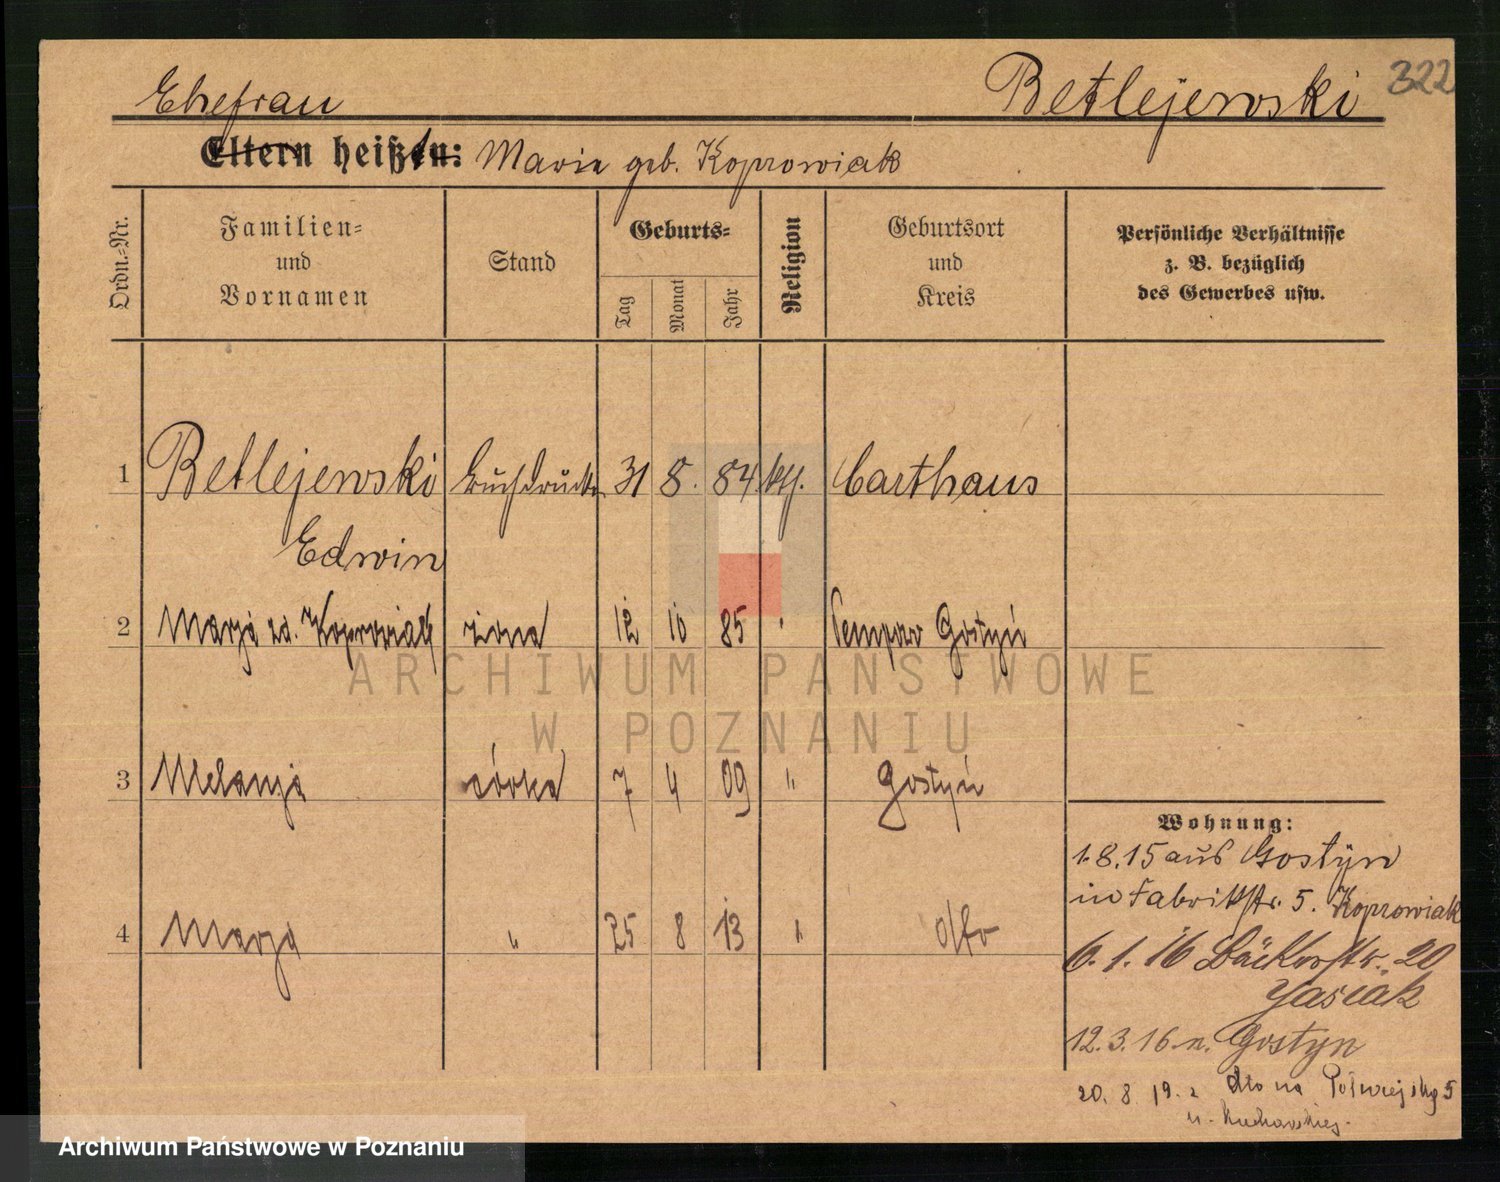 Ehefrau Betlejewski 322
Eltern heißen: Maria geb. Koprowiak
Ordn.-Nr.
Familien-
und
Vornamen
Stand
Geburts-
Tag
Monat
Jahr
Religion
Geburtsort
und
Kreis
Persönliche Verhältnisse
z. B. bezüglich
des Gewerbes usw.
1 Betlejewski Buchdrucker 31 8. 84 kth. Carthaus
Edwin
2 Marja zd. Koprowiak żona 12 10 85 " Gostyń
3 Melanja córka 7 4 09 " Gostyń
4 Marja " 25 8 13 " dto
Wohnung:
1.8.15 aus Gostyn
in Fabrikstr. 5. Koprowiak
6.1.16 Bäckerstr. 20
Jasiak
12.3.16 n. Gostyn
20. 8 19. z dto na 5
ARCHIWUM PAŃSTWOWE
W POZNANIU
Archiwum Państwowe w Poznaniu